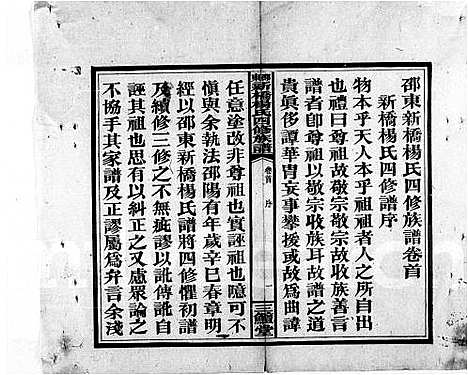 邵東新橋楊氏四修族譜卷首
新橋楊氏四修譜序
物本乎天人本乎祖祖者人之所自出
也禮曰尊祖故敬宗敬宗故收族善言
譜者卽尊祖以敬宗收族耳故譜之道
貴眞侈譚華胄妄事攀援或故爲曲諱
新橋楊氏四修族譜
卷首 序
一
三鱣堂
任意塗改非尊祖也實誣祖也隐可不
愼與余執法邵陽有年歲辛巳春章明
經以邵東新橋楊氏譜將四修懼初譜
及續修三修之不無疵謬以訛傳訛自
誣其祖者有以糾正之又慮衆論之
不協手其家譜及正謬屬爲弁言余淺